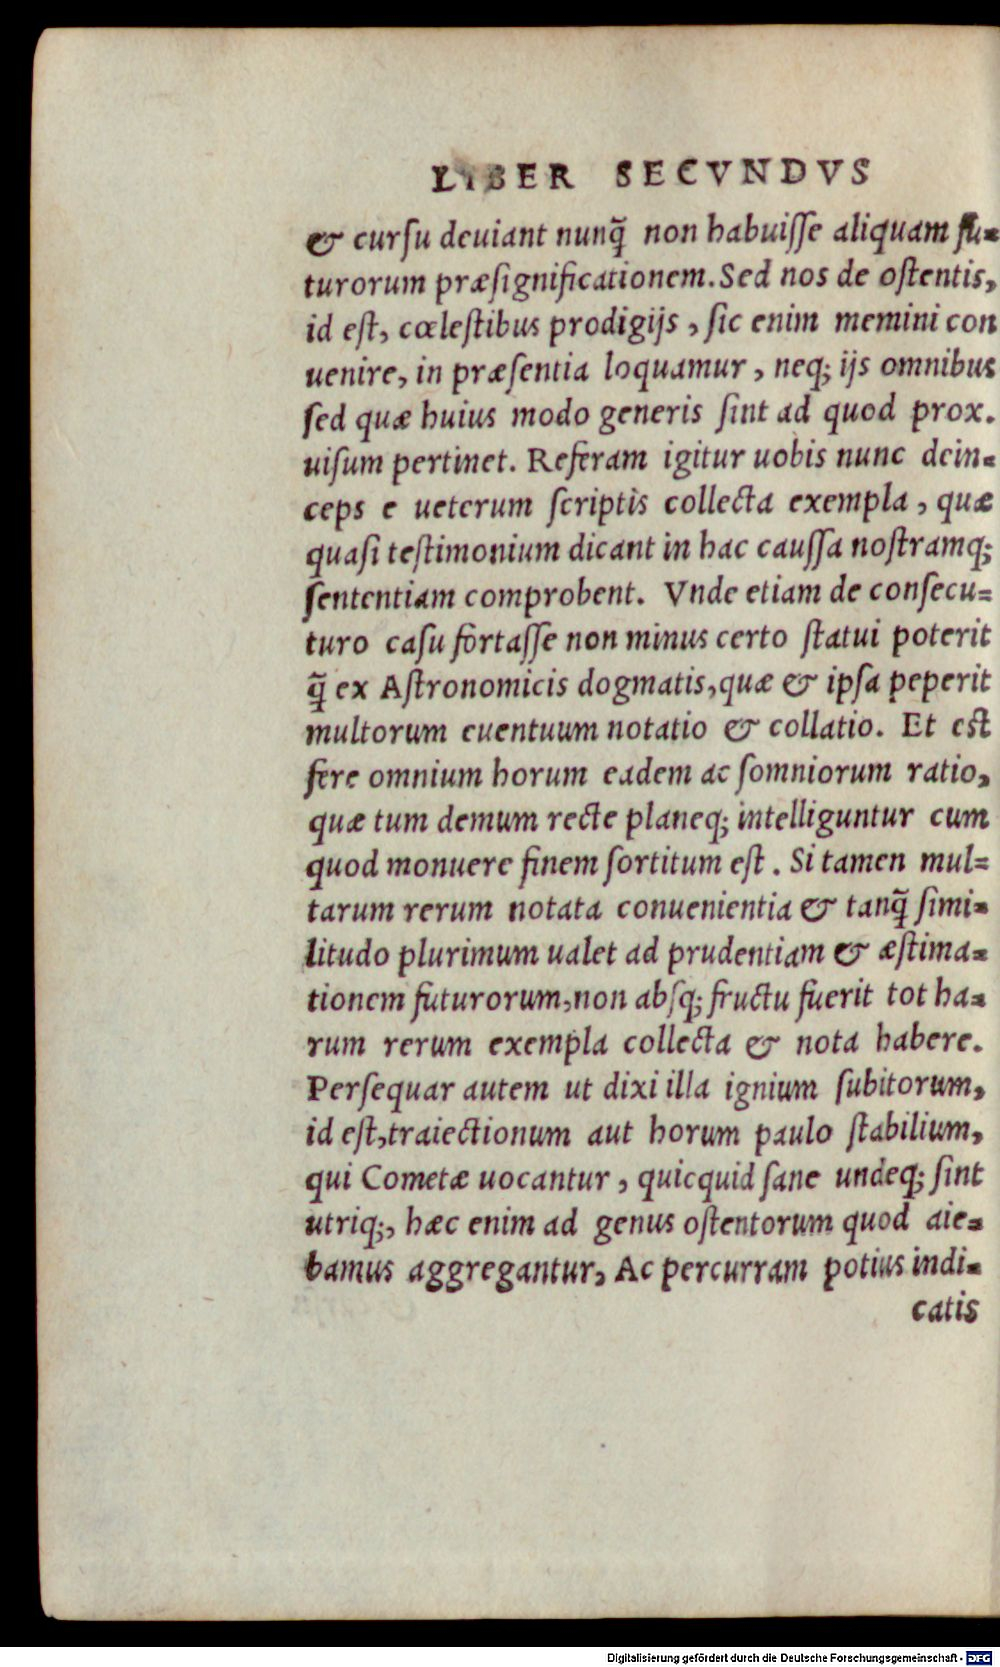 LIBER SECVNDVS
& curſu deuiant nunq̃ non habuiſſe aliquam fu-
turorum præſignificationem. Sed nos de oſtentis,
id eſt, cœleſtibus prodigijs, ſic enim memini con
uenire, in præſentia loquamur, neq; ijs omnibus
ſed quæ huius modo generis ſint ad quod prox.
uiſum pertinet. Referam igitur uobis nunc dein-
ceps e ueterum ſcriptis collecta exempla, quæ
quaſi teſtimonium dicant in hac cauſſa noſtramq;
ſententiam comprobent. Vnde etiam de conſecu-
turo caſu fortaſſe non minus certo ſtatui poterit
q̃ ex Aſtronomicis dogmatis, quæ & ipſa peperit
multorum euentuum notatio & collatio. Et eſt
fere omnium horum eadem ac ſomniorum ratio,
quæ tum demum recte planeq; intelliguntur cum
quod monuere finem ſortitum eſt. Si tamen mul-
tarum rerum notata conuenientia & tanq̃ ſimi-
litudo plurimum ualet ad prudentiam & æſtima-
tionem futurorum, non abſq; fructu fuerit tot ha-
rum rerum exempla collecta & nota habere.
Perſequar autem ut dixi illa ignium ſubitorum,
id eſt, traiectionum aut horum paulo ſtabilium,
qui Cometæ uocantur, quicquid ſane undeq; ſint
utriq;, hæc enim ad genus oſtentorum quod aie-
bamus aggregantur, Ac percurram potius indi-
catis
Digitalisierung gefördert durch die Deutsche Forschungsgemeinschaft - DFG